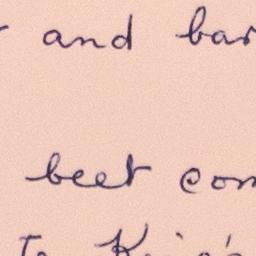 and bar
beet com
To King's